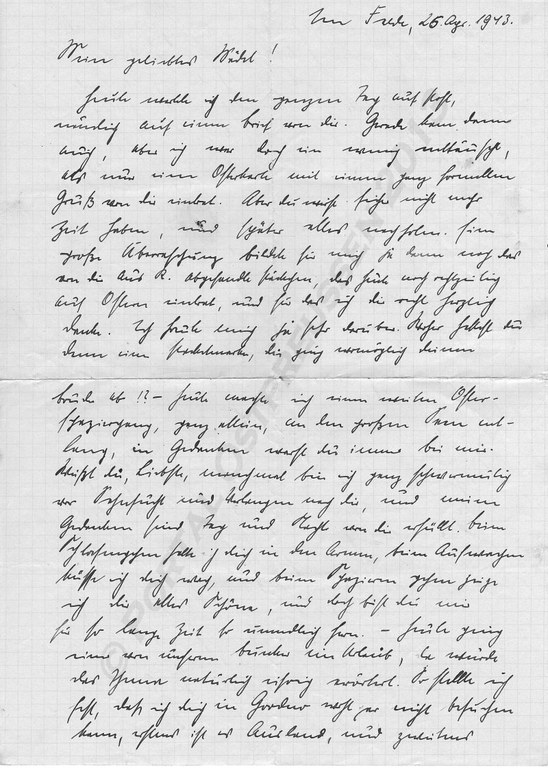 Im Felde, 26. Apr. 1943.
Mein geliebtes Mädel!
Heute wartete ich den ganzen Tag auf Post,
nämlich auf einen Brief von dir. Gerade kam denn
auch, aber ich war doch ein wenig enttäuscht,
als nur eine Osterkarte mit einem ganz formellen
Gruß von dir eintraf. Aber du wirst sicher nicht mehr
Zeit haben, und später alles nachholen. Eine
große Überraschung bildete für mich ja dann noch das
von dir aus R. abgesandte Päckchen, das heute noch rechtzeitig
auf Ostern eintraf, und für das ich dir recht herzlich
danke. Ich freute mich ja sehr darüber. Woher hattest du
denn eine Päckchenmarke, die ging womöglich deinem
Bruder ab!? – Heute machte ich einen weiten Oster-
spaziergang, ganz allein, an dem großen See ent-
lang, in Gedanken warst du immer bei mir.
Weißt du, Liebste, manchmal bin ich ganz schwermütig
vor Sehnsucht und Verlangen nach dir, und meine
Gedanken sind Tag und Nacht von dir erfüllt. Beim
Schlafengehen halte ich dich in den Armen, beim Aufwachen
küsse ich dich wach, und beim Spazieren gehen zeige
ich dir alles Schöne, und doch bist du mir
für so lange Zeit so unendlich fern. – Heute ging
einer von unserem Bunker in Urlaub, da wurde
das Thema natürlich eifrig erörtert. So stellte ich
fest, daß ich dich in Grodno wohl gar nicht besuchen
kann, erstens ist es Ausland, und zweitens
© PORTAL-OSTPREUSSEN 201